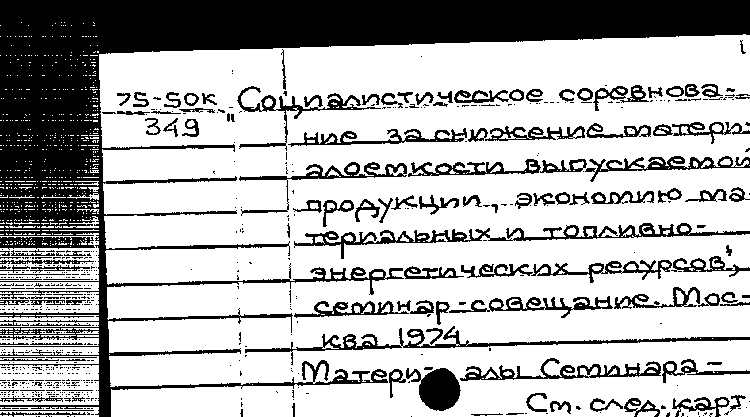 75-50к "Социалистическое соревнова-
349 ние за снижение матери-
алоемкости выпускаемой
продукции, экономию ма-
териальных и топливно-
энергетических ресурсов",
семинар-совещание. Мос-
ква. 1974.
Материалы Семинара -
См. след. карт